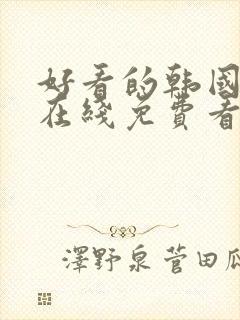 好看的韩国
在綫免費看
澤野泉菅田瓜